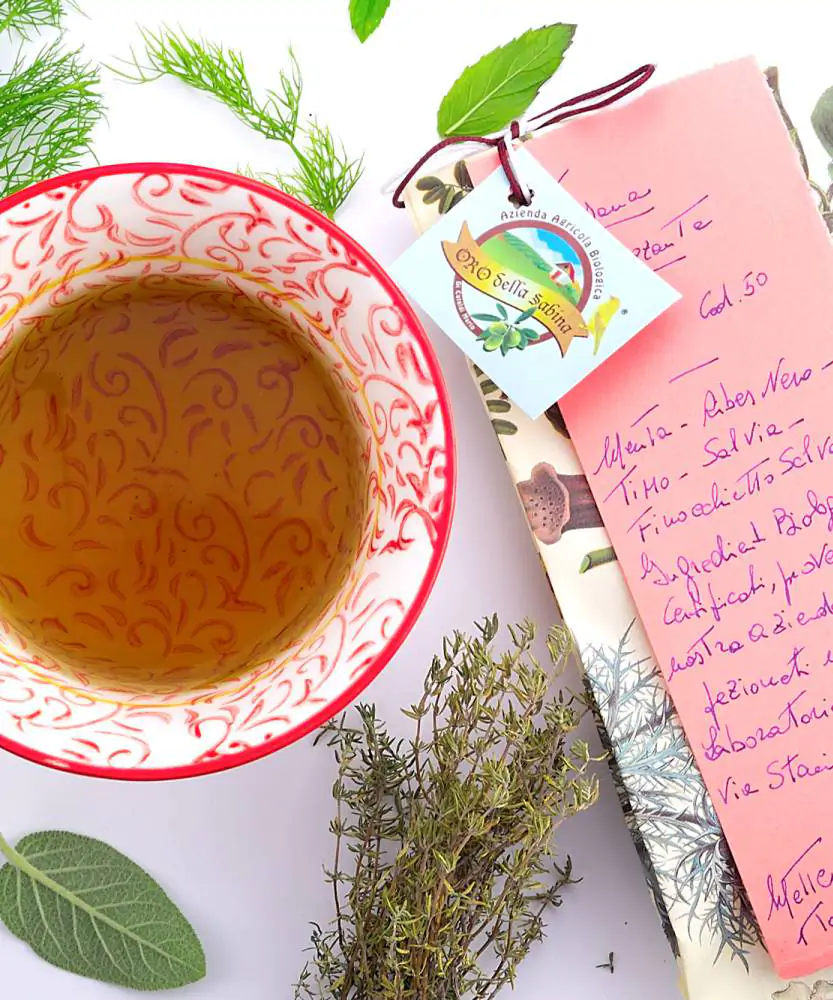 Azienda Agricola Biologica
ORO della Sabina
Cod. 50
Menta - Ribes Nero -
Timo - Salvia -
Finocchietto Selva
Ingredienti Biolog
Certificati, prove
nostra aziend
fezionati
Laboratori
Via
Mette